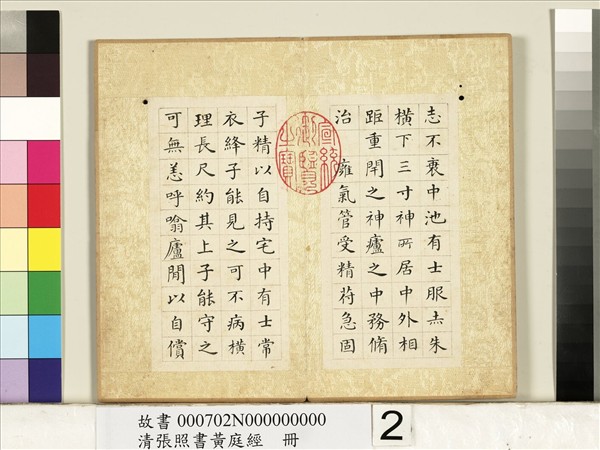 志不衰中池有士服赤朱
橫下三寸神所居中外相
距重閉之神廬之中務脩
治 癰氣管受精苻急固
子精以自持宅中有士常
衣絳子能見之可不病橫
理長尺約其上子能守之
可無恙呼噏廬間以自償
宣統御覽之寶
故書 000702N000000000
清張照書黃庭經 冊
2